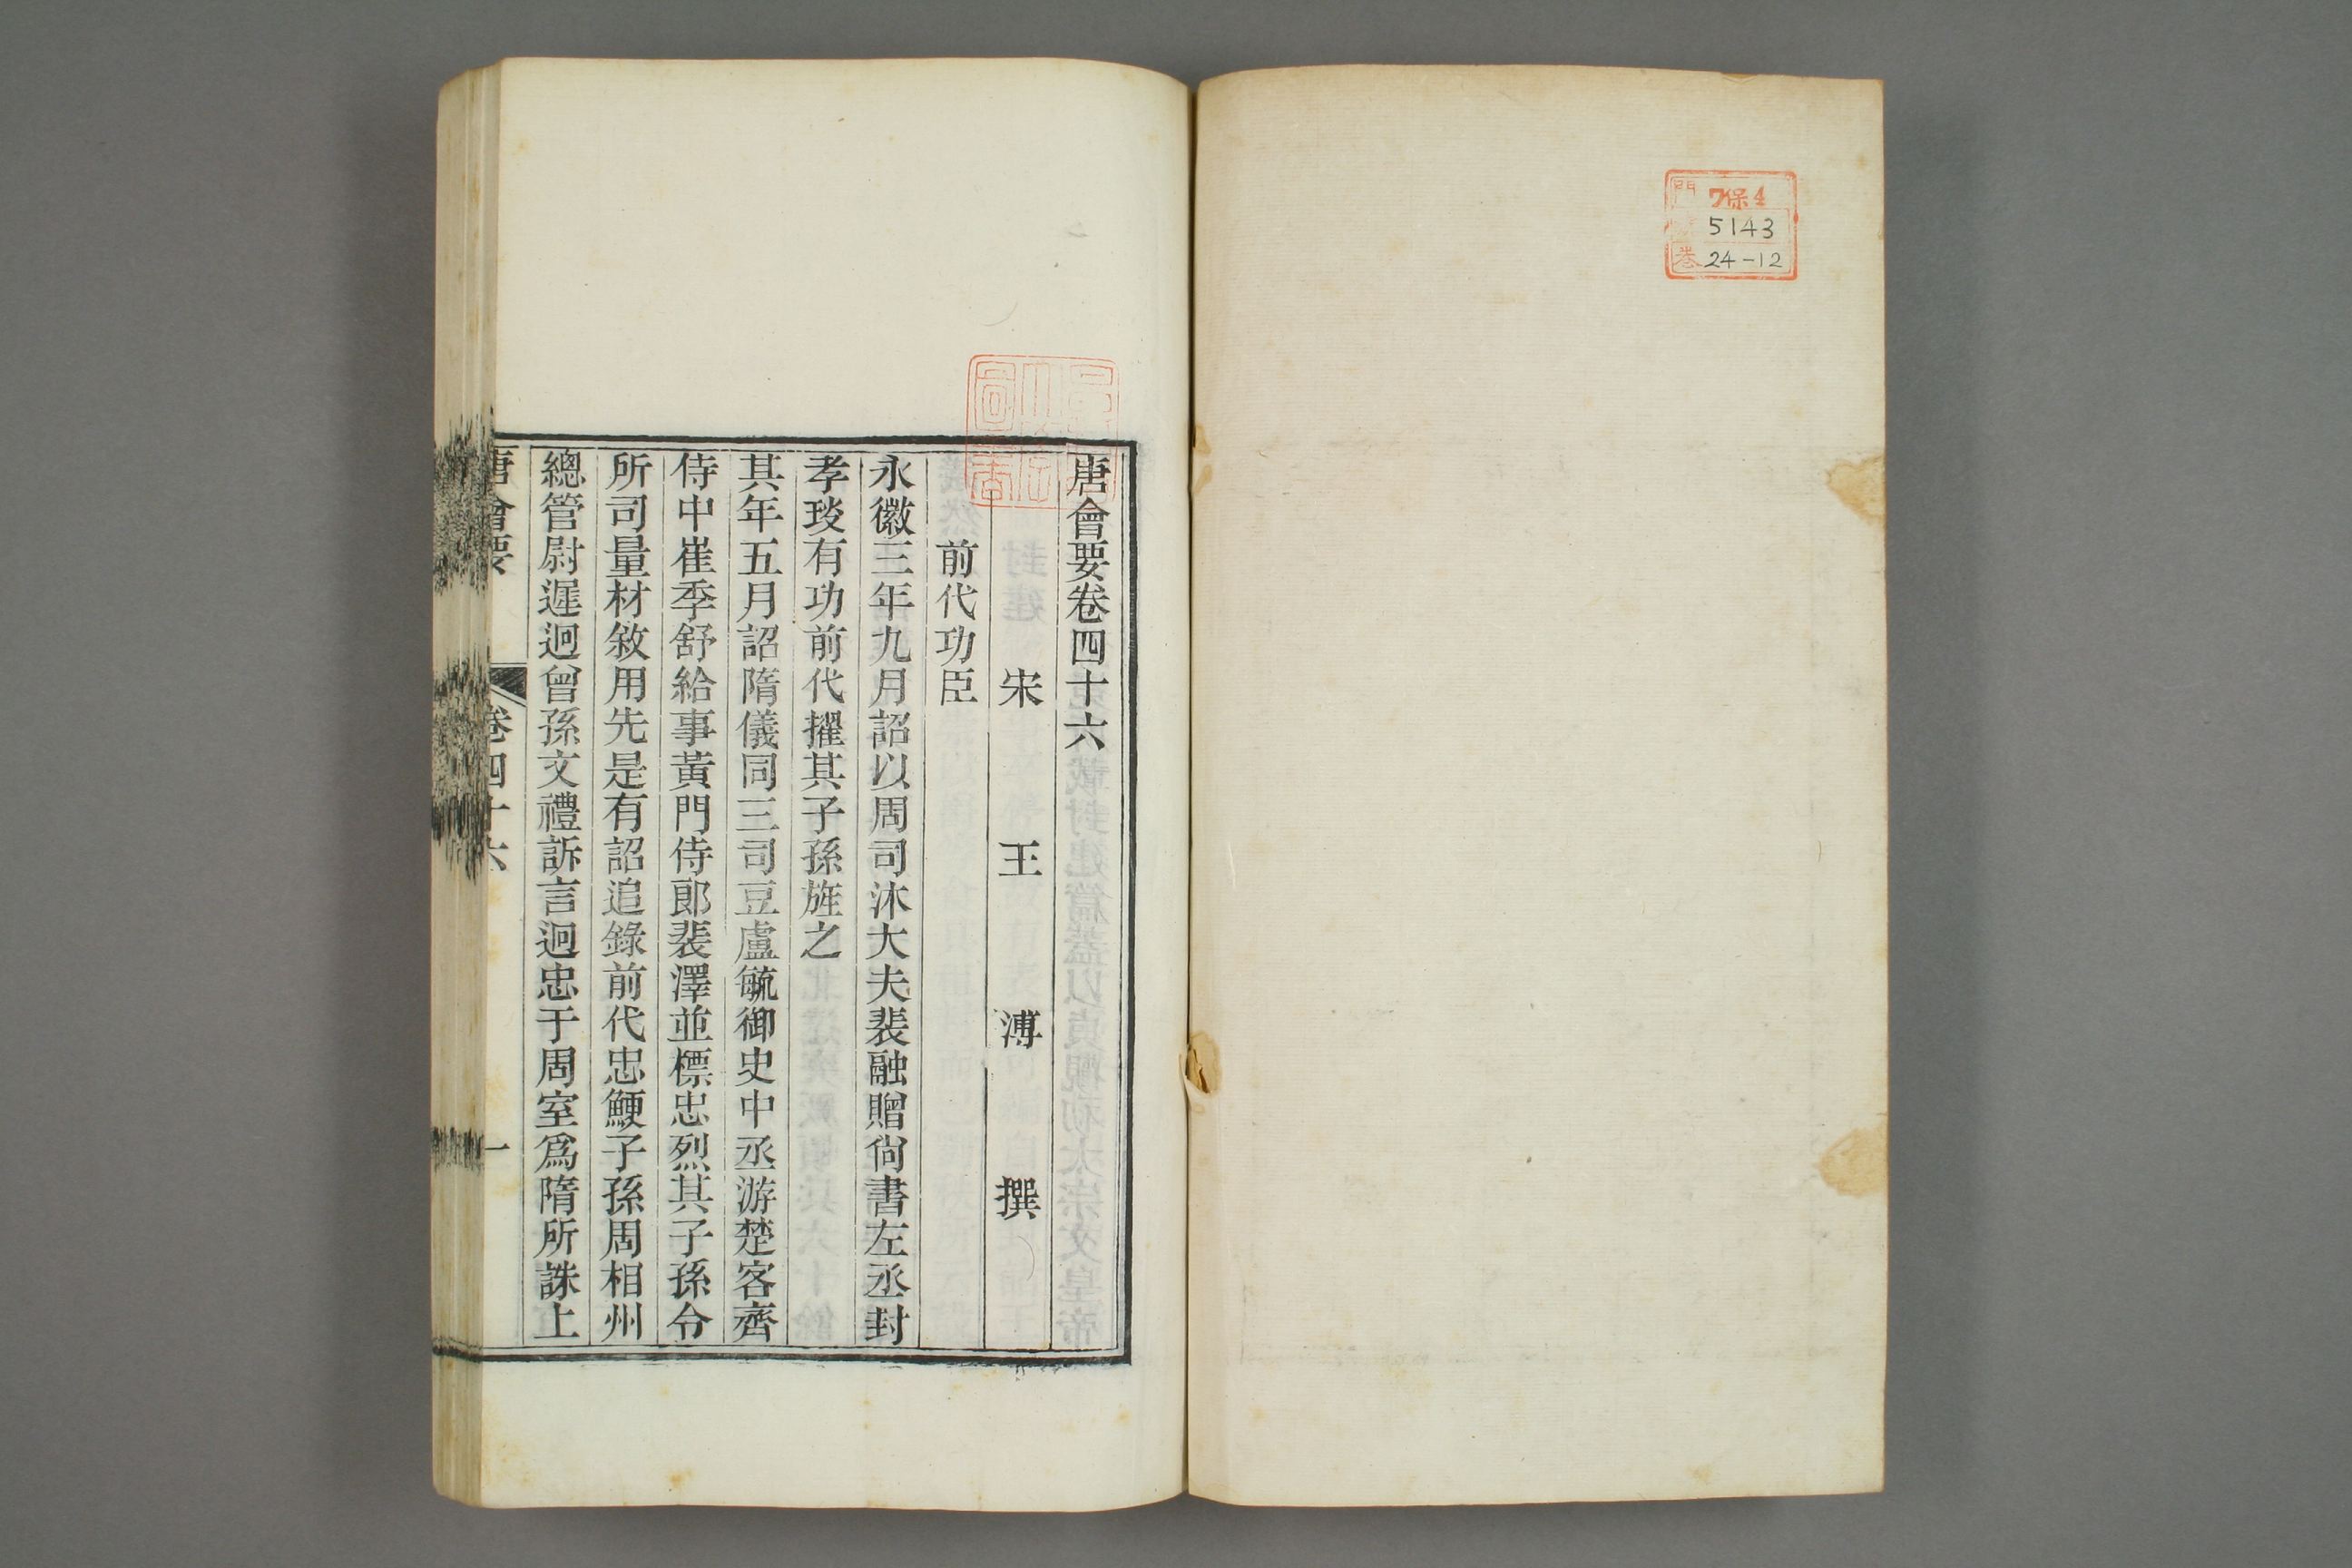 門 ワ保4
5143
卷 24-12
唐會要卷四十六
宋 王 溥 撰
前代功臣
永徽三年九月詔以周司沐大夫裴融贈尙書左丞封
孝琰有功前代擢其子孫旌之
其年五月詔隋儀同三司豆盧毓御史中丞游楚客齊
侍中崔季舒給事黃門侍郞裴澤並標忠烈其子孫令
所司量材敘用先是有詔追錄前代忠鯁子孫周相州
總管尉遲迥曾孫文禮訴言迥忠于周室爲隋所誅上
唐會要 卷四十六 一